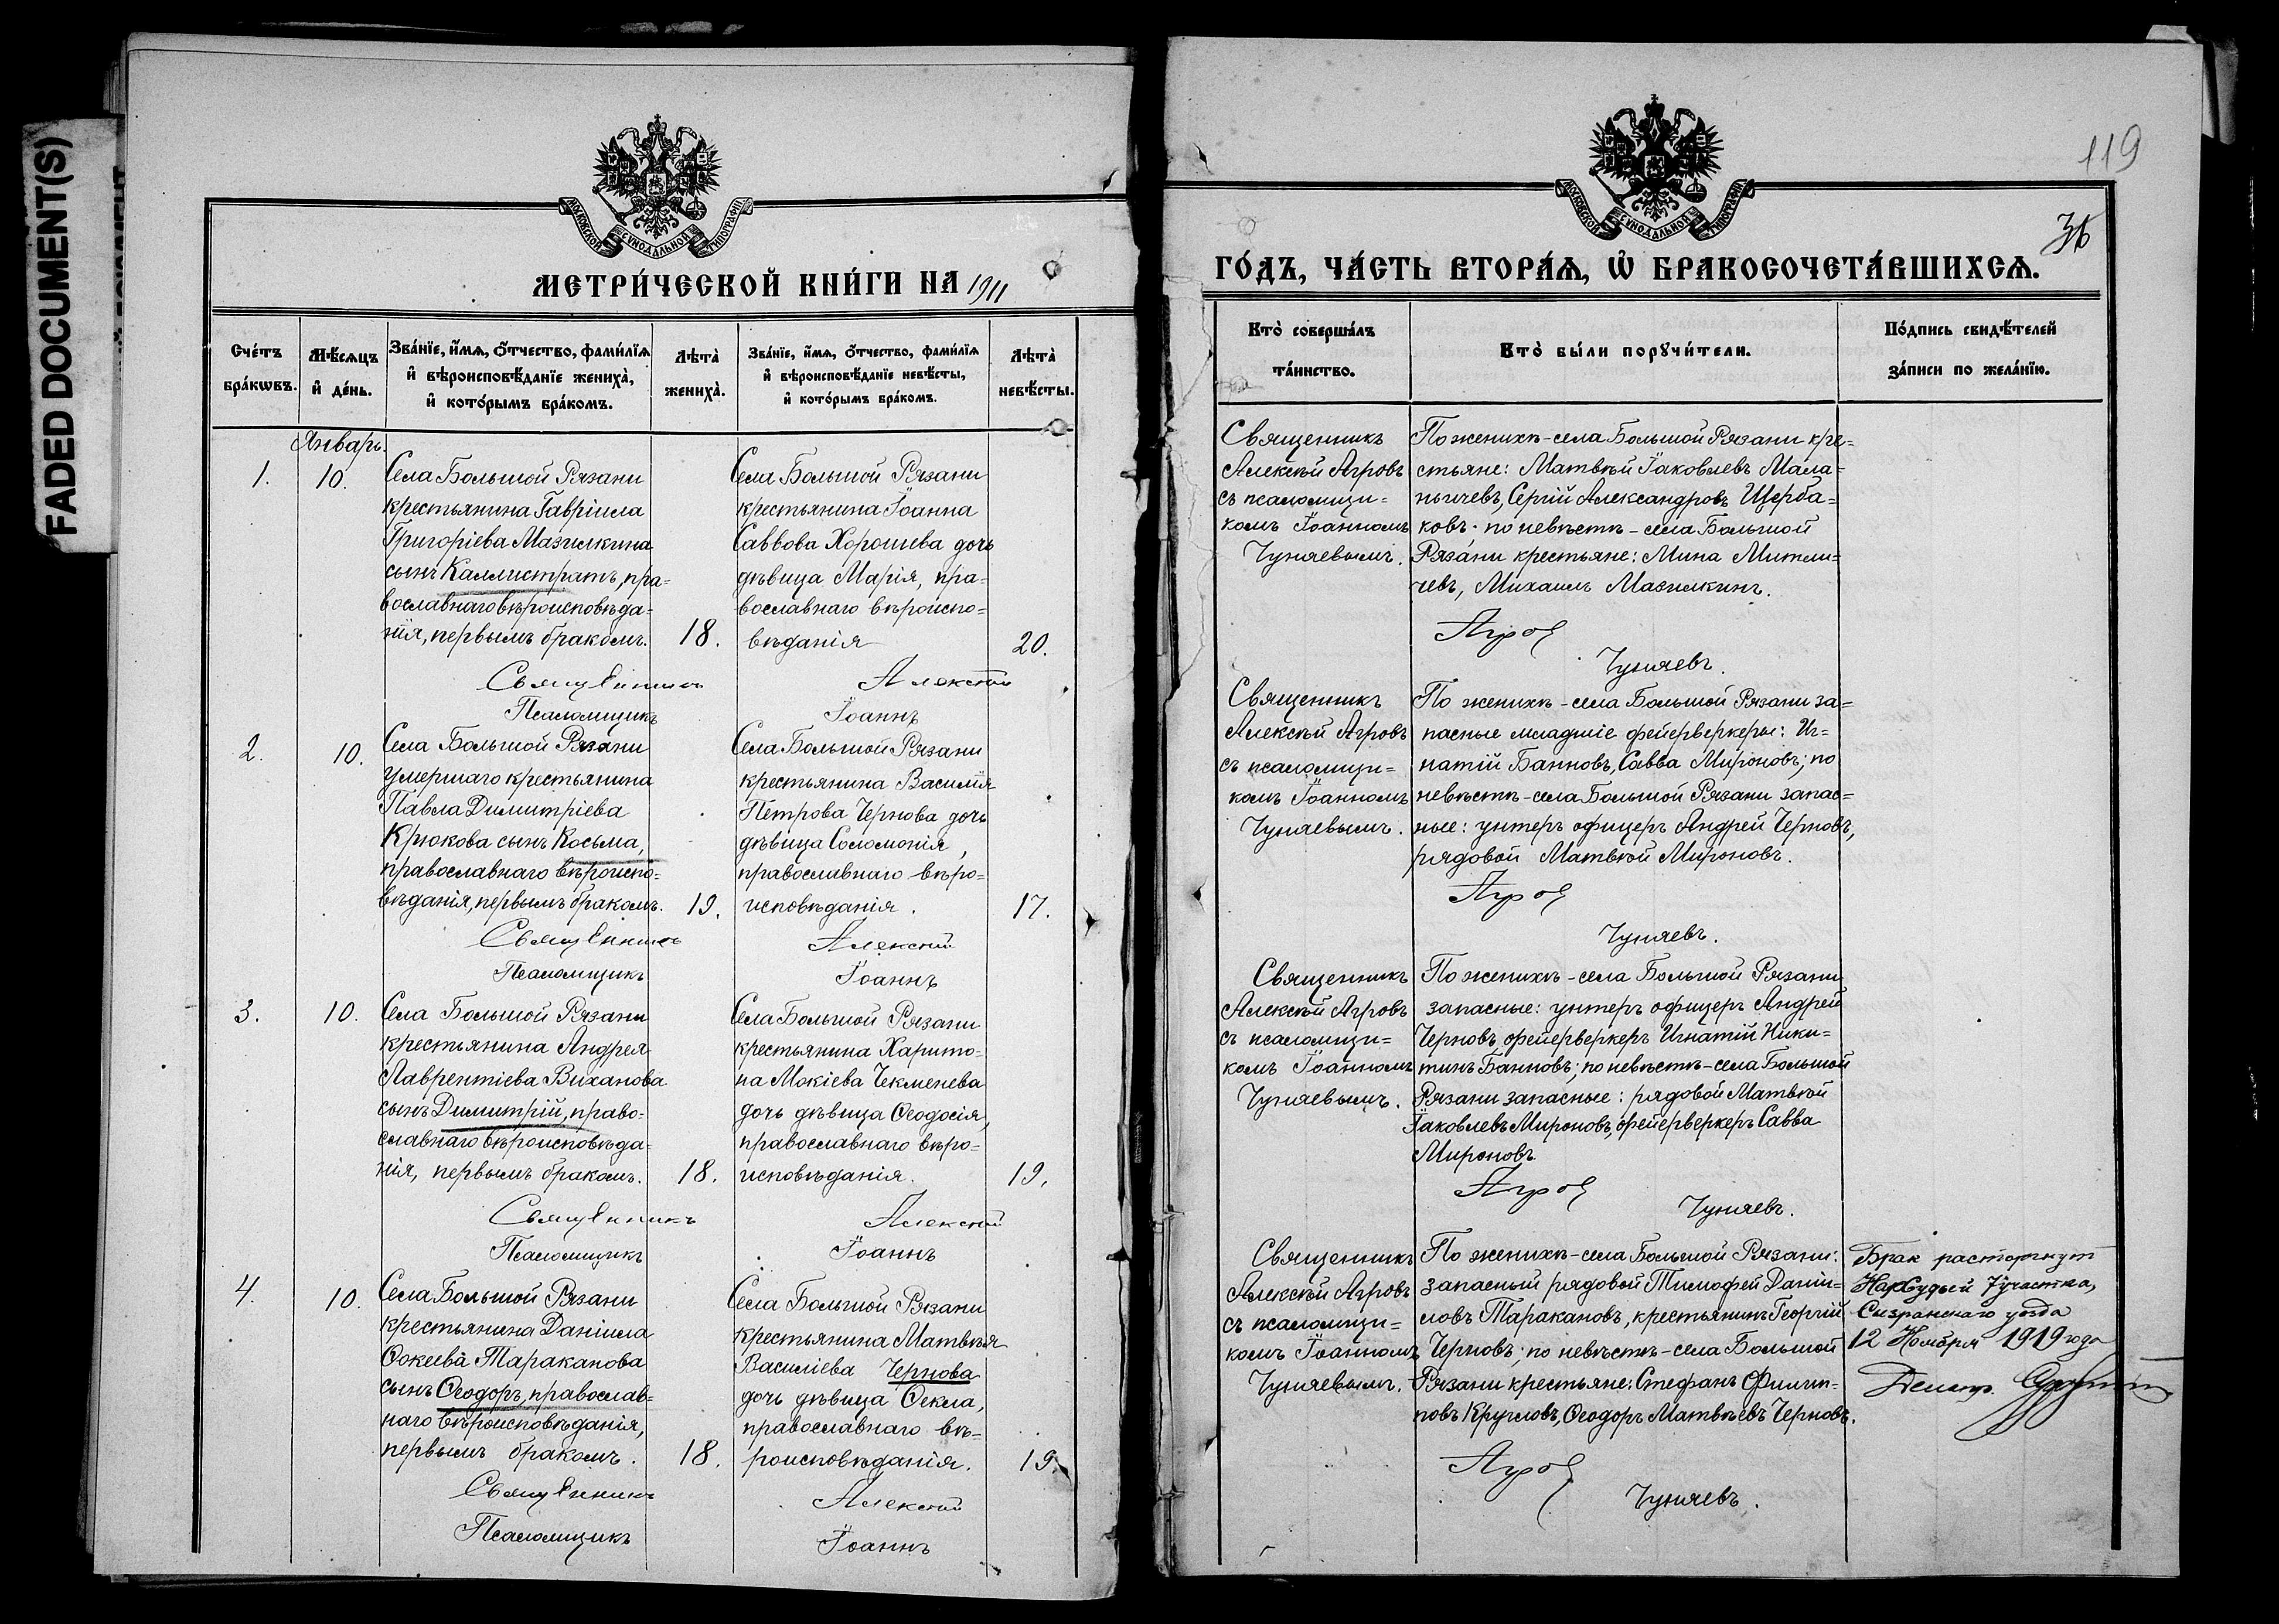 FADED DOCUMENT(S)
МОСКОВСКОЙ СѴНОДАЛЬНОЙ ТИПОГРАФІИ
МЕТРИ́ЧЕСКОЙ КНИ́ГИ НА 1911
Сче́тъ
бра́кѡвъ.
Мѣ́сяцъ
и҆ де́нь.
Зва́нїе, и҆́мѧ, ѻ҆́тчество, фами́лїѧ
и҆ вѣроисповѣ́данїе жениха̀,
и҆ кото́рымъ бра́комъ.
Лѣта̀
жениха̀.
Зва́нїе, и҆́мѧ, ѻ҆́тчество, фами́лїѧ
и҆ вѣроисповѣ́данїе невѣ́сты,
и҆ кото́рымъ бра́комъ.
Лѣта̀
невѣ́сты.
Январь.
1.
10.
Села Большой Рязани
крестьянина Гавріила
Григоріева Мазилкина
сынъ Каллистратъ, пра=
вославнаго вѣроисповѣда=
нія, первымъ бракомъ.
18.
Села Большой Рязани
крестьянина Іоанна
Саввова Хорошева дочь
дѣвица Марія, пра=
вославнаго вѣроиспо=
вѣданія
20.
Священникъ Алексій
Псаломщикъ Іоаннъ
2.
10.
Села Большой Рязани
умершаго крестьянина
Павла Димитріева
Крюкова сынъ Косьма,
православнаго вѣроиспо=
вѣданія, первымъ бракомъ.
19.
Села Большой Рязани
крестьянина Василія
Петрова Чернова дочь
дѣвица Соломонія,
православнаго вѣро=
исповѣданія.
17.
Священникъ Алексій
Псаломщикъ Іоаннъ
3.
10.
Села Большой Рязани
крестьянина Андрея
Лаврентіева Виханова
сынъ Димитрій, право=
славнаго вѣроисповѣда=
нія, первымъ бракомъ.
18.
Села Большой Рязани
крестьянина Харито=
на Мокіева Чекменева
дочь дѣвица Ѳеодосія,
православнаго вѣро=
исповѣданія.
19.
Священникъ Алексій
Псаломщикъ Іоаннъ
4.
10.
Села Большой Рязани
крестьянина Даніила
Ѳокеева Тараканова
сынъ Ѳеодоръ, православ=
наго вѣроисповѣданія,
первымъ бракомъ.
18.
Села Большой Рязани
крестьянина Матвѣя
Василіева Чернова
дочь дѣвица Ѳекла,
православнаго вѣ=
роисповѣданія.
19.
Священникъ Алексій
Псаломщикъ Іоаннъ
119
36
МОСКОВСКОЙ СѴНОДАЛЬНОЙ ТИПОГРАФІИ
ГО́ДЪ, ЧА́СТЬ ВТОРА́Ѧ, Ѡ҆ БРАКОСОЧЕТА́ВШИХСѦ.
Кто̀ соверша́лъ
та́инство.
Кто̀ бы́ли порꙋчи́тели.
По́дпись свидѣ́телей
за́писи по жела́нїю.
Священникъ
Алексѣй Агровъ
съ псаломщи=
комъ Іоанномъ
Чуняевымъ.
По женихѣ - села Большой Рязани кре=
стьяне: Матвѣй Іаковлевъ Мала=
ньичевъ, Сергій Александровъ Щерба=
ковъ; по невѣстѣ - села Большой
Рязани крестьяне: Мина Митли=
чевъ, Михаилъ Мазилкинъ.
Агров
Чуняевъ.
Священникъ
Алексѣй Агровъ
съ псаломщи=
комъ Іоанномъ
Чуняевымъ.
По женихѣ - села Большой Рязани за=
пасные младшіе фейерверкеры: Иг=
натій Банновъ, Савва Мироновъ; по
невѣстѣ - села Большой Рязани запас=
ные: унтеръ офицеръ Андрей Черновъ,
рядовой Матвѣй Мироновъ.
Агров
Чуняевъ.
Священникъ
Алексѣй Агровъ
съ псаломщи=
комъ Іоанномъ
Чуняевымъ.
По женихѣ - села Большой Рязани
запасные: унтеръ офицеръ Андрей
Черновъ, фейерверкеръ Игнатій Ники=
тинъ Банновъ; по невѣстѣ - села Большой
Рязани запасные: рядовой Матвѣй
Іаковлевъ Мироновъ, фейерверкеръ Савва
Мироновъ.
Агров
Чуняевъ.
Священникъ
Алексѣй Агровъ
съ псаломщи=
комъ Іоанномъ
Чуняевымъ.
По женихѣ - села Большой Рязани:
запасный рядовой Тимофей Даніи=
ловъ Таракановъ, крестьянинъ Георгій
Черновъ; по невѣстѣ - села Большой
Рязани крестьяне: Стефанъ Филип=
повъ Кругловъ, Ѳеодоръ Матвѣевъ Черновъ.
Агров
Чуняевъ.
Брак расторгнут
НарСудьей 7 участка,
Сызранскаго уѣзда
12 Ноября 1919 года